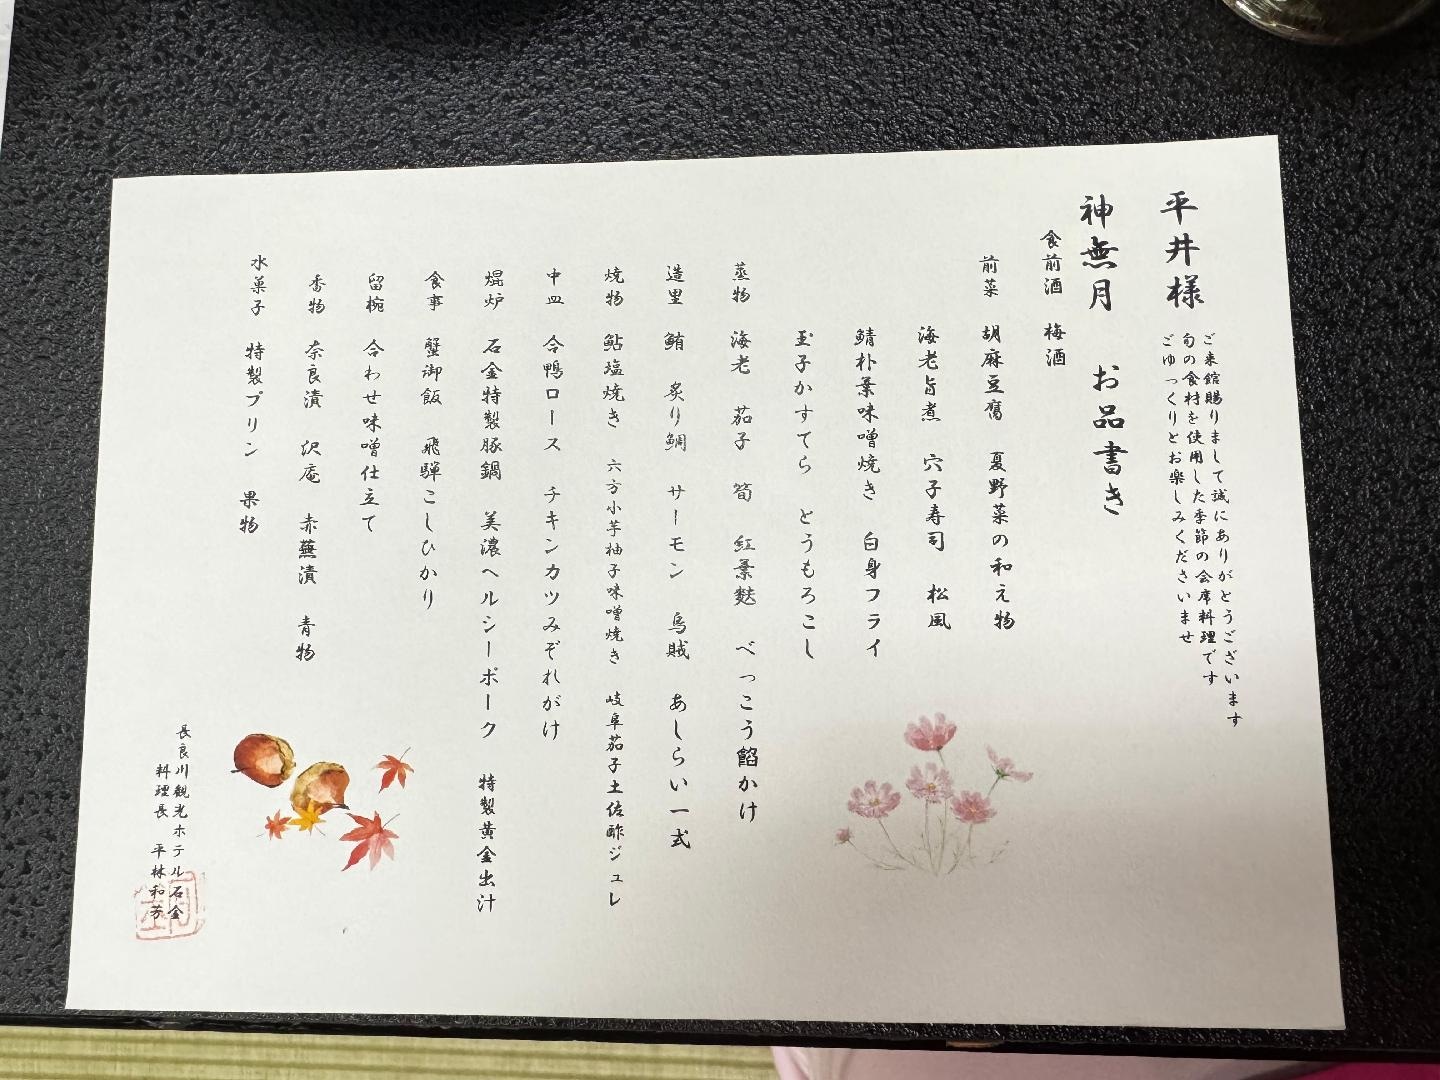 平井様
ご来館賜りまして誠にありがとうございます
旬の食材を使用した季節の会席料理です
ごゆっくりとお楽しみくださいませ
神無月 お品書き
食前酒 梅酒
前菜 胡麻豆腐 夏野菜の和え物
海老旨煮 穴子寿司 松風
鯖朴葉味噌焼き 白身フライ
玉子かすてら とうもろこし
蒸物 海老 茄子 筍 紅葉麩 べっこう餡かけ
造里 鮪 炙り鯛 サーモン 烏賊 あしらい一式
焼物 鮎塩焼き 六方小芋柚子味噌焼き 岐阜茄子土佐酢ジュレ
中皿 合鴨ロース チキンカツみぞれがけ
焜炉 石金特製豚鍋 美濃ヘルシーポーク 特製黄金出汁
食事 蟹御飯 飛騨こしひかり
留椀 合わせ味噌仕立て
香物 奈良漬 沢庵 赤蕪漬 青物
水菓子 特製プリン 果物
長良川観光ホテル石金
料理長 平林和芳